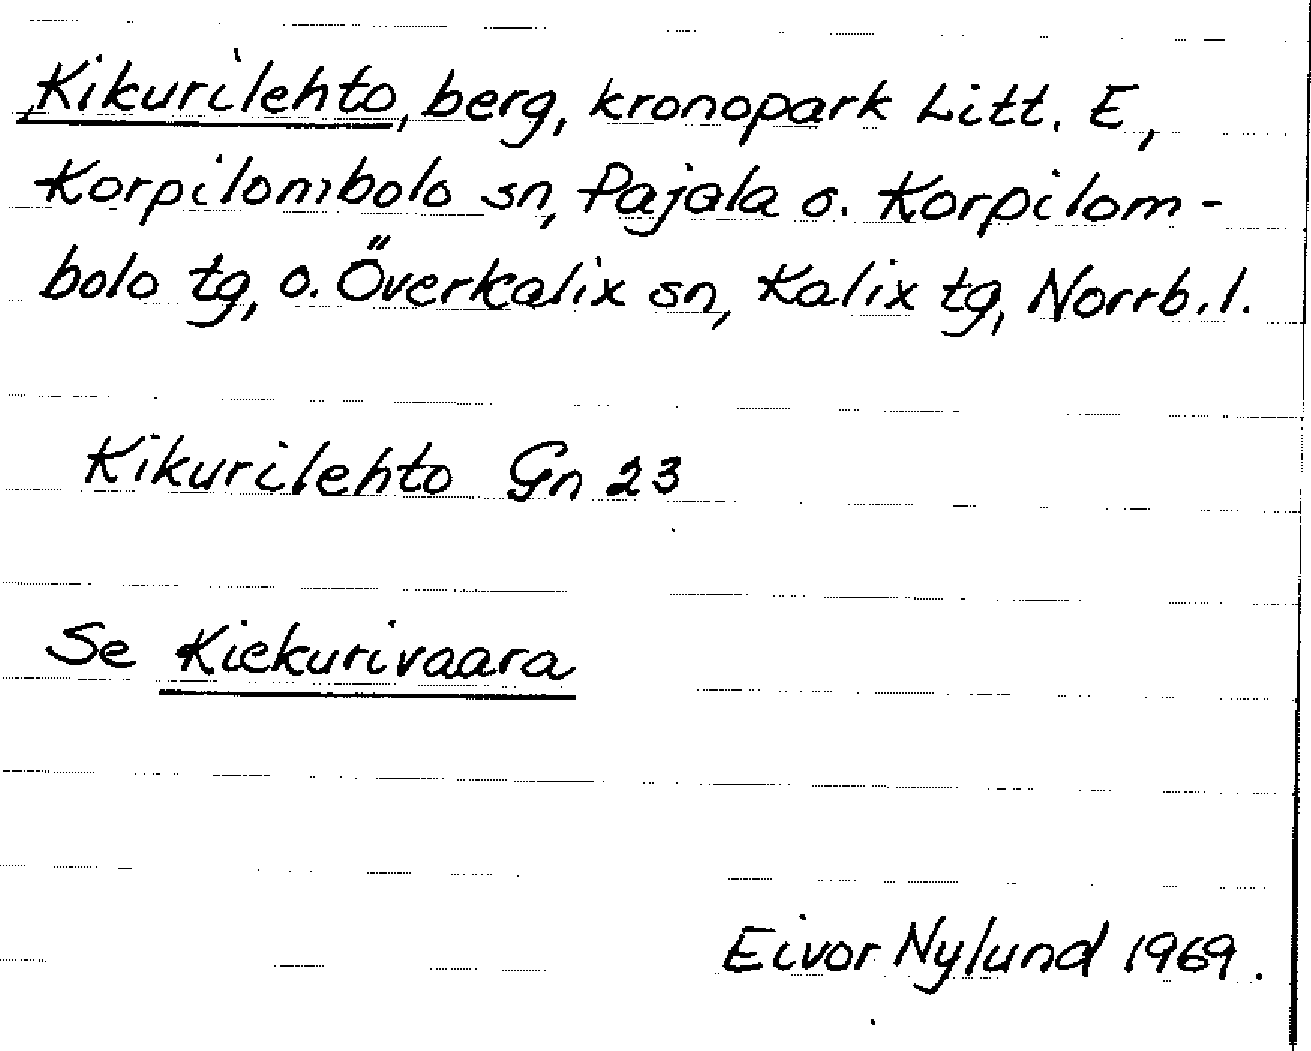 Kikurilehto, berg, kronopark Litt. E,
Korpilombolo sn, Pajala o. Korpilom-
bolo tg, o. Överkalix sn, Kalix tg, Norrb.l.
Kikurilehto Gn 23
Se Kiekurivaara
Eivor Nylund 1969.